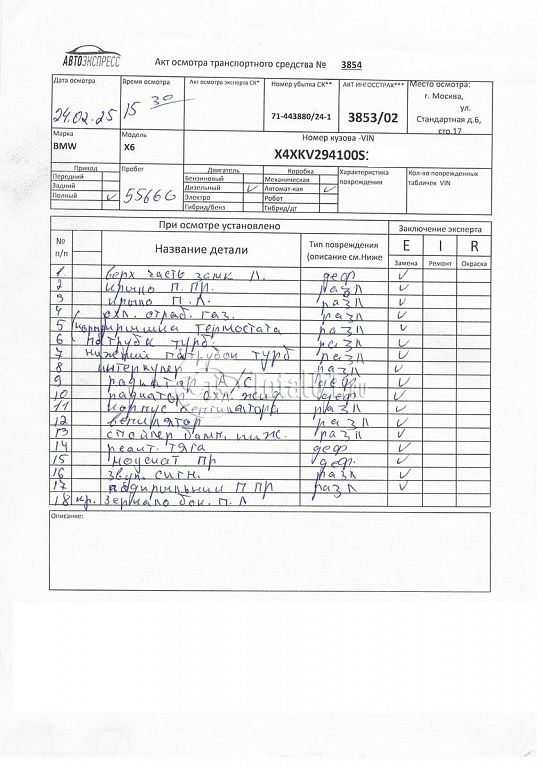 АВТОЭКСПРЕСС
Акт осмотра транспортного средства № 3854
Дата осмотра
24.02.25
Время осмотра
15 30
Акт осмотра эксперта СК*
Номер убытка СК**
71-443880/24-1
АКТ ИНГОССТРАХ***
3853/02
Место осмотра:
г. Москва,
ул.
Стандартная д.6,
стр.17
Марка
BMW
Модель
X6
Номер кузова -VIN
X4XKV294100S:
Привод
Передний
Задний
Полный ✓
Пробег
55666
Двигатель
Бензиновый
Дизельный ✓
Электро
Гибрид/бенз
Коробка
Механическая
Автомат-кая ✓
Робот
Гибрид/дт
Характеристика
повреждения
Кол-во поврежденных
табличек VIN
При осмотре установлено
Заключение эксперта
№
п/п
Название детали
Тип повреждения
(описание см.Ниже
E I R
Замена Ремонт Окраска
1 верх часть замк П. деф ✓
2 крыло П.ПР. разл ✓
3 крыло П.Л. разл ✓
4 охл. отраб. газ. разл ✓
5 крышка термостата разл ✓
6 патрубк турб. разл ✓
7 нижний патрубок турб разл ✓
8 интеркулер разл ✓
9 радиатор А/С деф ✓
10 радиатор охл. жид деф ✓
11 корпус вентилятора разл ✓
12 вентилятор разл ✓
13 спойлер бамп. ниж. разл ✓
14 реакт. тяга деф ✓
15 ПР деф. ✓
16 звук. сигн. разл ✓
17 подкрыльник П ПР разл ✓
18 кр. зеркало бок. П.Л
Описание: